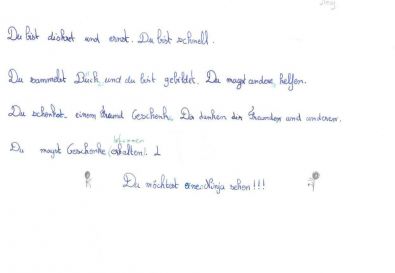 Du bist diskret und ernst. Du bist schnell.
Du sammelst Büch und du bist gebildet. Du magst andere helfen.
Du schenkst einem Freund Geschenk. Du danken der Fremden und anderen.
bekommen
Du magst Geschenke (erhalten).
Du möchtest eine Ninja sehen!!!